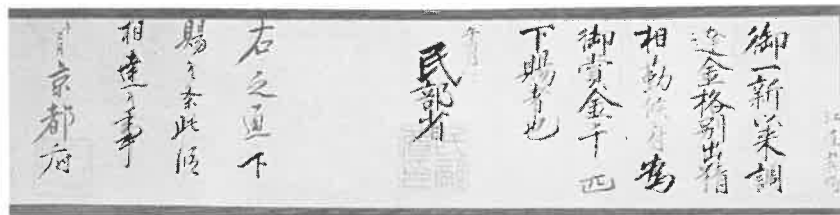 御一新以来調
達金格別出精
相勤候付為
御賞金千匹
下賜者也
民部省
右之通下
賜候条此段
相達候事
京都府